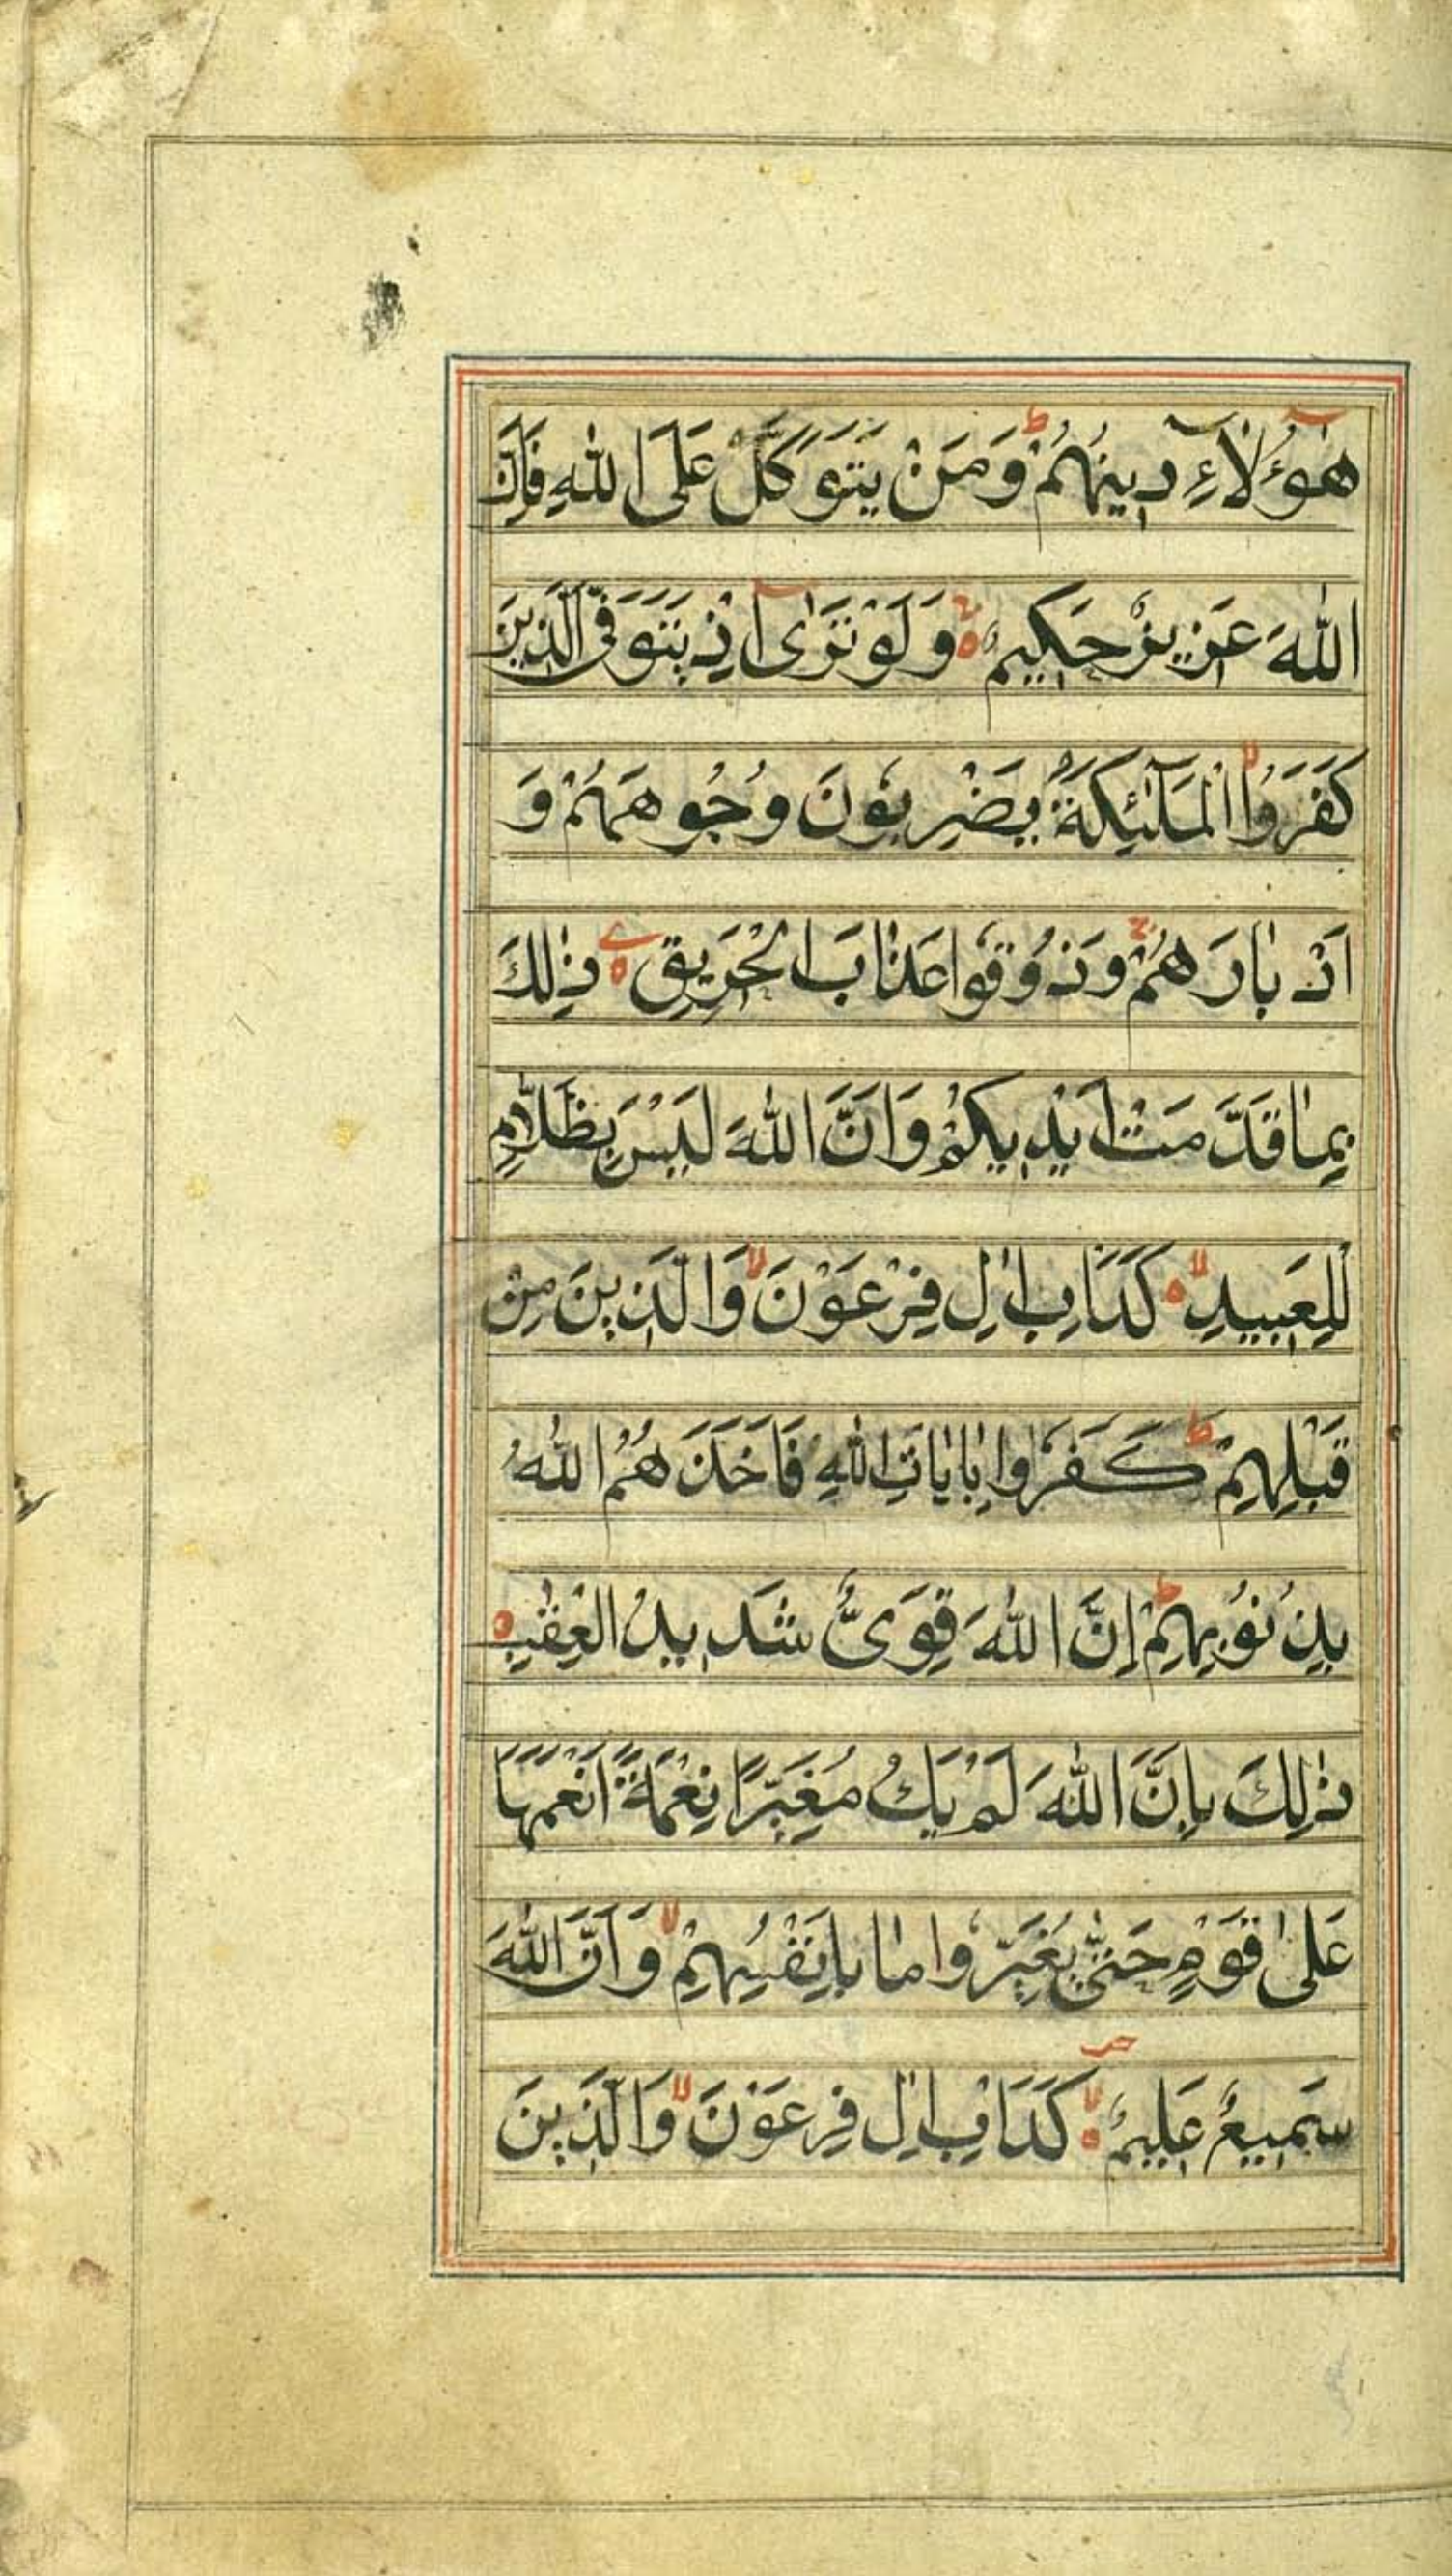 هٰٓؤُلَآءِ دِينُهُمْ ؕ وَمَنْ يَتَوَكَّلْ عَلَى اللّٰهِ فَاِنَّ
اللّٰهَ عَزِيزٌ حَكِيمٌ ۝ وَلَوْ تَرٰٓى اِذْ يَتَوَفَّى الَّذِينَ
كَفَرُوا ۙ الْمَلٰٓئِكَةُ يَضْرِبُونَ وُجُوهَهُمْ وَ
اَدْبَارَهُمْ ۚ وَذُوقُوا عَذَابَ الْحَرِيقِ ۝ ذٰلِكَ
بِمَا قَدَّمَتْ اَيْدِيكُمْ وَاَنَّ اللّٰهَ لَيْسَ بِظَلَّامٍ
لِلْعَبِيدِ ۝ ۙ كَدَاْبِ اٰلِ فِرْعَوْنَ ۙ وَالَّذِينَ مِنْ
قَبْلِهِمْ ؕ كَفَرُوا بِاٰيَاتِ اللّٰهِ فَاَخَذَهُمُ اللّٰهُ
بِذُنُوبِهِمْ ؕ اِنَّ اللّٰهَ قَوِىٌّ شَدِيدُ الْعِقٰبِ ۝
ذٰلِكَ بِاَنَّ اللّٰهَ لَمْ يَكُ مُغَيِّرًا نِعْمَةً اَنْعَمَهَا
عَلٰى قَوْمٍ حَتّٰى يُغَيِّرُوا مَا بِاَنْفُسِهِمْ ۙ وَاَنَّ اللّٰهَ
سَمِيعٌ عَلِيمٌ ۝ ۙ كَدَاْبِ اٰلِ فِرْعَوْنَ ۙ وَالَّذِينَ